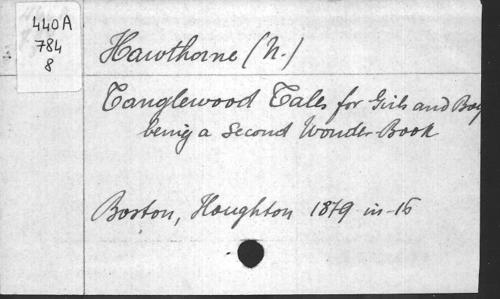 440A
784
8
Hawthorne (N.)
Tanglewood Tales for Girls and Boy
being a second Wonder-Book
Boston, Houghton 1879 in-16